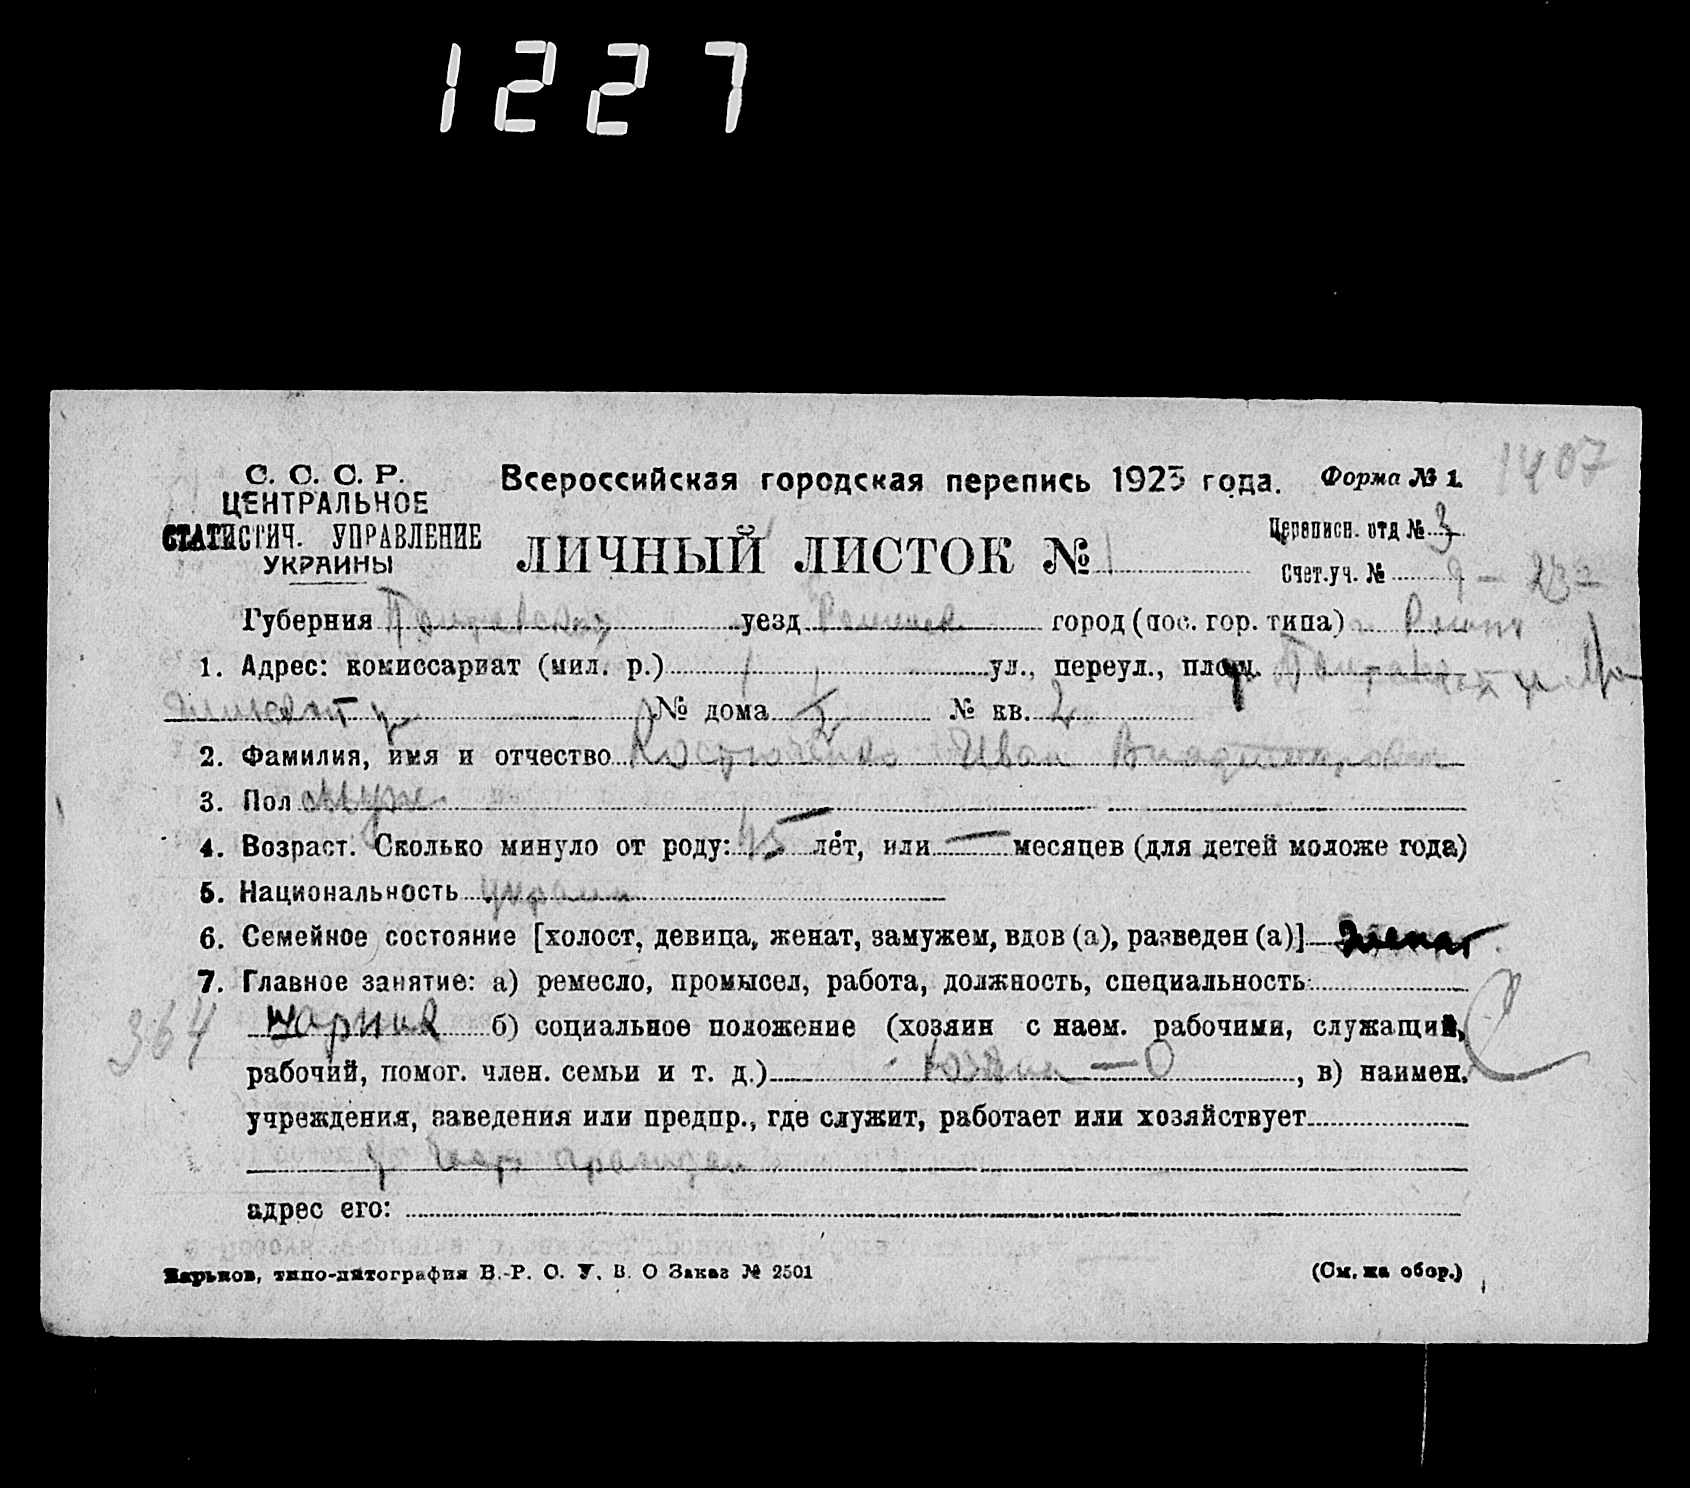 1227
1407
С. С. С. Р.
ЦЕНТРАЛЬНОЕ
СТАТИСТИЧ. УПРАВЛЕНИЕ
УКРАИНЫ
Всероссийская городская перепись 1923 года. Форма № 1.
ЛИЧНЫЙ ЛИСТОК № 1
Переписн. отд № 3
Счет.уч. № 9 – 23
Губерния Полтавская уезд город (пос. гор. типа)
1. Адрес: комиссариат (мил. р.) ул., переул., площ.
№ дома № кв. 2
2. Фамилия, имя и отчество Костюченко Иван Владимирович
3. Пол муж
4. Возраст. Сколько минуло от роду: 45 лет, или — месяцев (для детей моложе года)
5. Национальность украин
6. Семейное состояние [холост, девица, женат, замужем, вдов (а), разведен (а)] женат
7. Главное занятие: а) ремесло, промысел, работа, должность, специальность:
364 б) социальное положение (хозяин с наем. рабочими, служащий,
рабочий, помог. член. семьи и т. д.) хозяин — О, в) наимен.
учреждения, заведения или предпр., где служит, работает или хозяйствует
адрес его:
Харьков, типо-литография В.-Р. О. У. В. О Заказ № 2501 (См. на обор.)